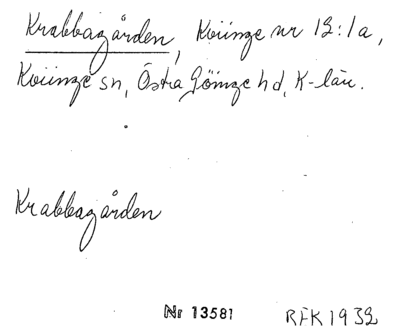 Krabbagården, Kviinge nr 12:1a,
Kviinge sn, Östra Göinge hd, K-län.
Krabbagården
Nr 13581
RFK 1932